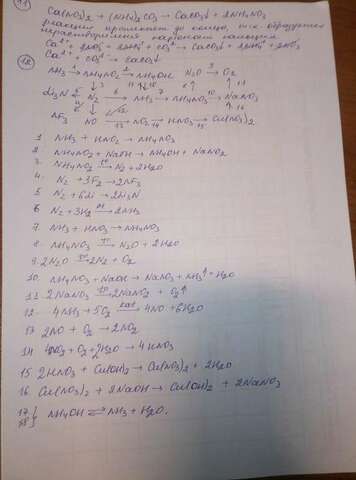 11
Ca(NO3)2 + (NH4)2CO3 → CaCO3↓ + 2NH4NO3
реакция протекает до конца, т.к. образуется
нерастворимый карбонат кальция
Ca2+ + 2NO3- + 2NH4+ + CO3 2- → CaCO3↓ + 2NH4+ + 2NO3-
Ca2+ + CO3 2- → CaCO3↓
12
NH3 → NH4NO2 → NH4OH N2O → O2
Li3N ← N2 → NH3 → NH4NO3 → NaNO3
NF3 NO → NO2 → HNO3 → Cu(NO3)2
1. NH3 + HNO2 → NH4NO2
2. NH4NO2 + NaOH → NH4OH + NaNO2
3. NH4NO2 → N2 + 2H2O
4. N2 + 3F2 → 2NF3
5 N2 + 6Li → 2Li3N
6 N2 + 3H2 → 2NH3
7. NH3 + HNO3 → NH4NO3
8. NH4NO3 → N2O + 2H2O
9. 2N2O → 2N2 + O2
10. NH4NO3 + NaOH → NaNO3 + NH3↑ + H2O
11 2NaNO3 → 2NaNO2 + O2↑
12. 4NH3 + 5O2 kat→ 4NO + 6H2O
13 2NO + O2 → 2NO2
14 4NO2 + O2 + 2H2O → 4HNO3
15 2HNO3 + Cu(OH)2 → Cu(NO3)2 + 2H2O
16. Cu(NO3)2 + 2NaOH → Cu(OH)2 + 2NaNO3
17 } NH4OH ⇄ NH3 + H2O.
18 }